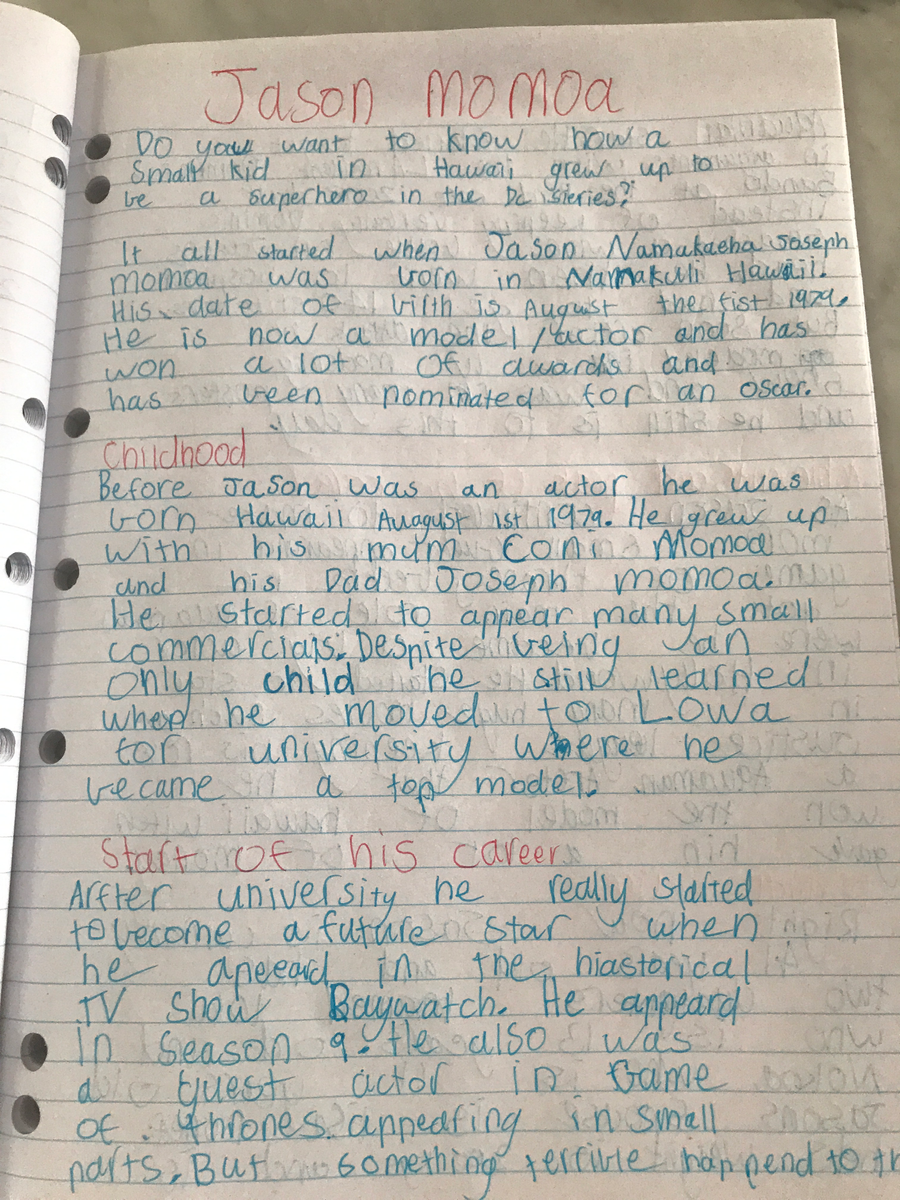 Jason momoa
Do you want to know how a
Small kid in Hawaii grew up to
be a superhero in the Dc series?
It all started when Jason Namakaeha Joseph
momoa was born in Namakuli Hawaii.
His date of birth is August the fist 1979.
He is now a model/actor and has
won a lot of awards and
has been nominated for an oscar.
Childhood
Before Jason was an actor he was
born Hawaii Auagust 1st 1979. He grew up
with his mum Coni Momoa
and his Dad Joseph momoa.
He started to appear many small
commercials. Despite being an
only child he still learned
when he moved to Lowa
for university where he
became a top model.
Start of his career
Arfter university he really started
to become a future star when
he apeeard in the hiastorical
TV show Baywatch. He appeard
in season 9. He also was
a guest actor in Game
of thrones appearing in small
parts. But something terrible happend to